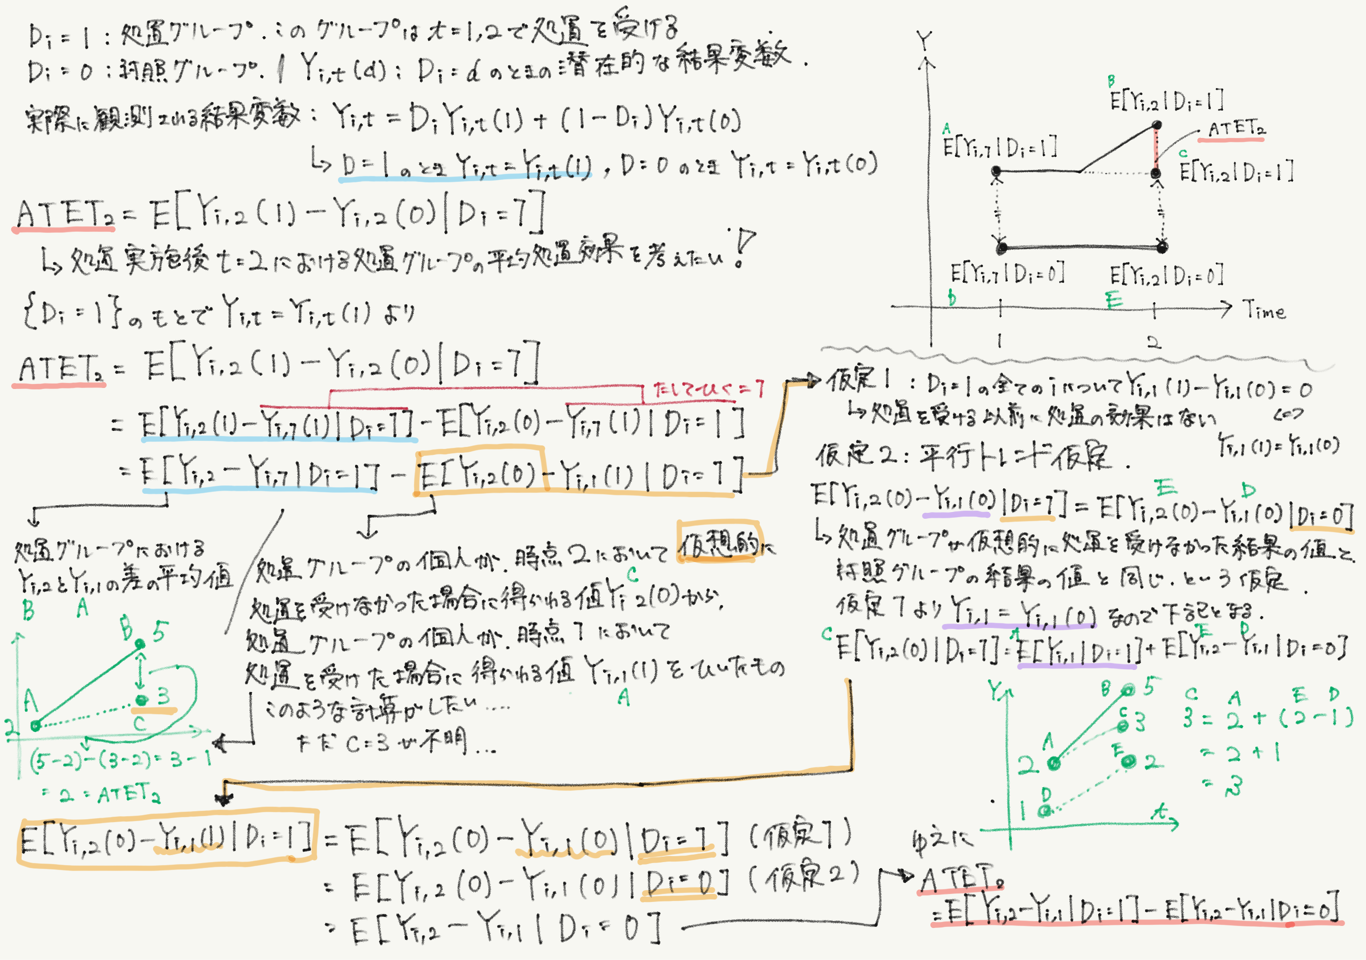 Di=1:処置グループ.このグループは t=1,2で処置を受ける
Di=0:対照グループ. | Yi,t(d): Di=dのときの潜在的な結果変数.
実際に観測される結果変数: Yi,t = DiYi,t(1) + (1-Di)Yi,t(0)
↳ D=1のとき Yi,t=Yi,t(1), D=0のとき Yi,t=Yi,t(0)
ATET2 = E[Yi,2(1) - Yi,2(0)|Di=1]
↳ 処置実施後 t=2における処置グループの平均処置効果を考えたい!
{Di=1}のもとで Yi,t=Yi,t(1)より
ATET2 = E[Yi,2(1) - Yi,2(0)|Di=1]
たしてひく=1
= E[Yi,2(1)-Yi,1(1)|Di=1] - E[Yi,2(0)-Yi,1(1)|Di=1]
= E[Yi,2-Yi,1|Di=1] - E[Yi,2(0)-Yi,1(1)|Di=1]
処置グループにおける
Yi,2とYi,1の差の平均値
B A
B 5
A
3
2
C
(5-2)-(3-2)=3-1
=2=ATET2
処置グループの個人が、時点2において仮想的に
処置を受けなかった場合に得られる値Yi,2(0)から、
C
処置グループの個人が、時点1において
処置を受けた場合に得られる値 Yi,1(1)をひいたもの
A
このような計算がしたい....
ただC=3が不明...
E[Yi,2(0)-Yi,1(1)|Di=1] = E[Yi,2(0)-Yi,1(0)|Di=1] (仮定1)
= E[Yi,2(0)-Yi,1(0)|Di=0] (仮定2)
= E[Yi,2-Yi,1|Di=0]
Y
B
E[Yi,2|Di=1]
A
E[Yi,1|Di=1]
ATET2
C
E[Yi,2|Di=1]
E[Yi,1|Di=0]
E[Yi,2|Di=0]
D
E
Time
1
2
仮定1:Di=1の全てのiについてYi,1(1)-Yi,1(0)=0
↳処置を受ける以前に処置の効果はない
⇔
Yi,1(1)=Yi,1(0)
仮定2:平行トレンド仮定.
E D
E[Yi,2(0)-Yi,1(0)|Di=1] = E[Yi,2(0)-Yi,1(0)|Di=0]
↳処置グループが仮想的に処置を受けなかった結果の値と、
対照グループの結果の値と同じ.という仮定.
仮定1より Yi,1=Yi,1(0)なので下記となる.
C A E D
E[Yi,2(0)|Di=1]=E[Yi,1|Di=1]+E[Yi,2-Yi,1|Di=0]
Y
B 5
C 3
A
2
E 2
D
1
t
C A E D
3=2+(2-1)
=2+1
=3
ゆえに
ATET2
=E[Yi,2-Yi,1|Di=1]-E[Yi,2-Yi,1|Di=0]